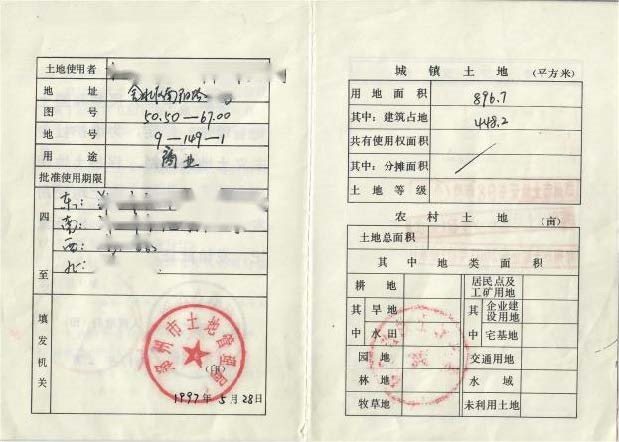 土地使用者
地址 金水区南阳路
图号 50.50—67.00
地号 9—149—1
用途 商业
批准使用期限
四至
东:
南:
西:
北:
填发机关
州市土地管理局
(印)
1997年5月28日
城镇土地 (平方米)
用地面积 896.7
其中:建筑占地 448.2
共有使用权面积
其中:分摊面积
土地等级
农村土地 (亩)
土地总面积
其中地类面积
耕地 居民点及工矿用地
其中 旱地 其中 企业建设用地
水田 宅基地
园地 交通用地
林地 水域
牧草地 未利用土地